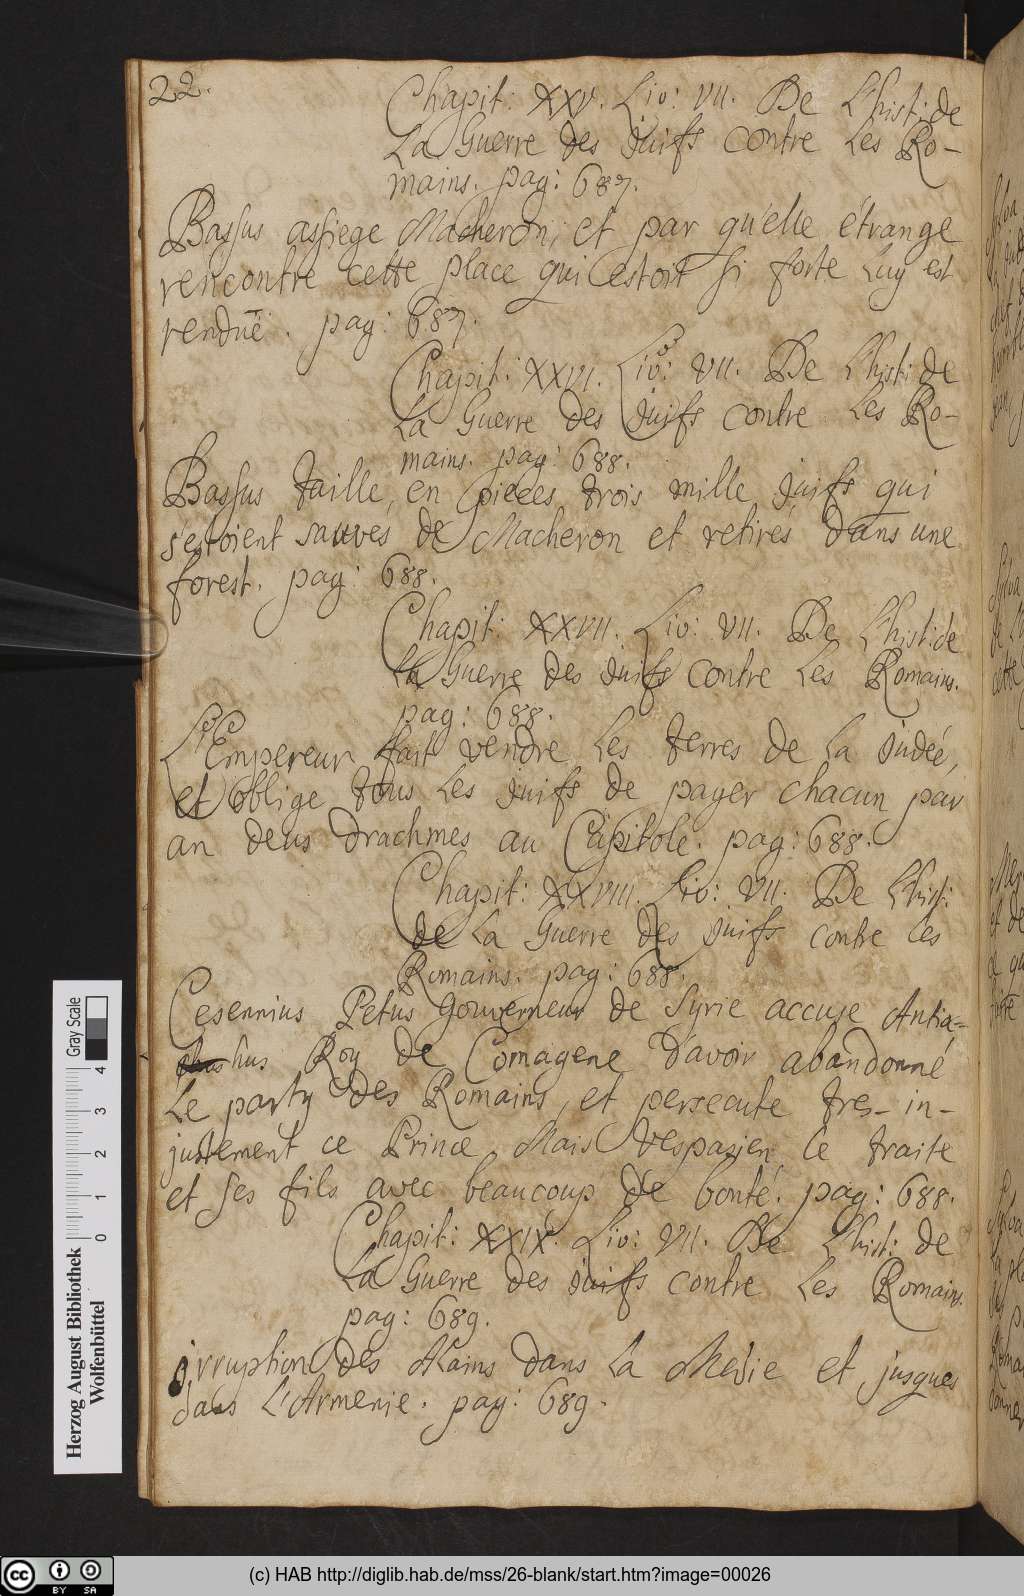 22.
Chapit: XXV. Liv: VII. De L'hist: de
La Guerre des Juifs contre Les Ro-
mains. pag: 687.
Bassus assiege Macheron, et par qu'elle étrange
rencontre cette place qui estoit si forte Luy est
renduë. pag: 687.
Chapit: XXVI. Liv: VII. De L'hist: de
La Guerre des Juifs contre Les Ro-
mains. pag: 688.
Bassus taille en pieces trois mille Juifs qui
s'estoient sauvés de Macheron et retirés dans une
forest. pag: 688.
Chapit: XXVII. Liv: VII. De L'hist: de
La Guerre des Juifs contre Les Romains.
pag: 688.
L'Empereur fait vendre Les terres de La Judeé,
et oblige tous Les Juifs de payer chacun par
an deus drachmes au Capitole. pag: 688.
Chapit: XXVIII. Liv: VII. De L'hist:
de La Guerre des Juifs contre Les
Romains. pag: 688.
Cesennius Petus Gouverneur de Syrie accuse Antio=
chus Roy de Comagene D'avoir abandonné
Le party des Romains, et persecute tres-in-
justement ce Prince Mais Vespasien Le traite
et ses fils avec beaucoup de bonté. pag: 688.
Chapit: XXIX. Liv: VII. De L'hist: de
La Guerre des Juifs contre Les Romains.
pag: 689.
Irruption des Alains dans La Medie et jusques
dans L'Armenie. pag: 689.
Gray Scale
0 1 2 3 4
Herzog August Bibliothek
Wolfenbüttel
BY SA
(c) HAB http://diglib.hab.de/mss/26-blank/start.htm?image=00026